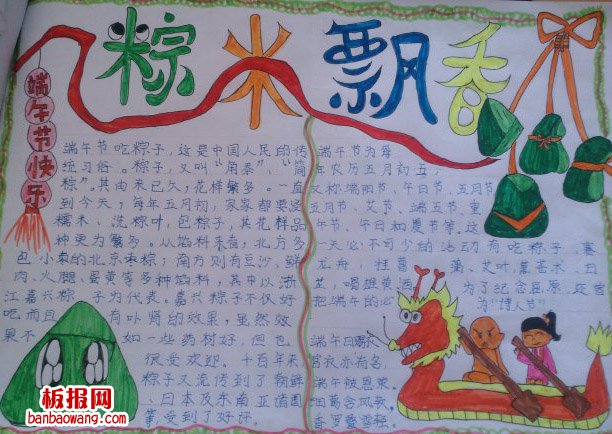 粽米飘香
端午节快乐
端午节吃粽子，这是中国人民的传
统习俗。粽子，又叫“角黍”、“筒
粽”。其由来已久，花样繁多。一直
到今天，每年五月初，家家都要浸
糯米、洗粽叶，包粽子，其花样品
种更为繁多。从馅料来看，北方多
包小枣的北京枣粽；南方则有豆沙、鲜
肉、火腿、蛋黄等多种馅料，其中以浙
江嘉兴粽子为代表。嘉兴粽子不仅好
吃而且有补肾的效果，虽然效
果不如一些药材好，但也
很受欢迎。千百年来，
粽子又流传到了朝鲜
、日本及东南亚诸国
等受到了好评。
端午节为每
年农历五月初五，
又称端阳节、午日节、五月节
五月节、艾节、端五节、重
午节、午日和夏节等，这
一天必不可少的活动有吃粽子，赛
龙舟，挂菖蒲、艾叶，薰苍术、白
芷，喝雄黄酒
为了纪念屈原，还曾
把端午的
为“诗人节”
端午日赐衣
宫衣亦有名，
端午被恩荣。
细葛含风软，
香罗叠雪轻。
板报网
banbaowang.com